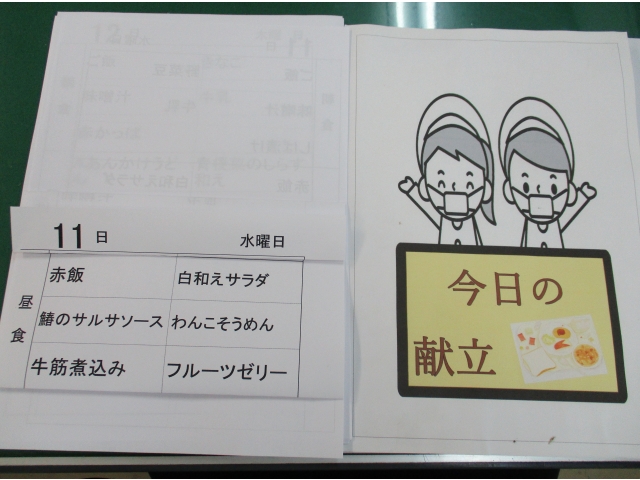 11日 水曜日
昼食
赤飯 白和えサラダ
鰆のサルサソース わんこそうめん
牛筋煮込み フルーツゼリー
今日の
献立